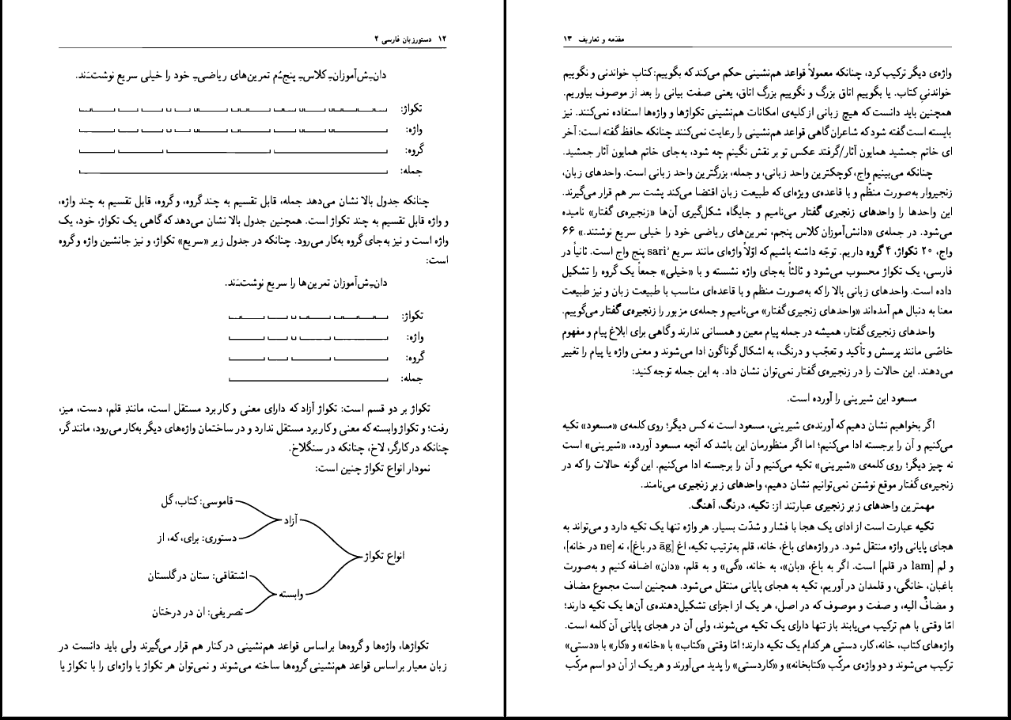 ۱۲ دستورزبان فارسی ۲
دانـِش‌آموزانـِ کلاسـِ پنج‌ـُم تمرین‌های ریاضیـِ خود را خیلی سریع نوشت‌ـَند.
تکواژ:
واژه:
گروه:
جمله:
چنانکه جدول بالا نشان می‌دهد جمله، قابل تقسیم به چند گروه، و گروه، قابل تقسیم به چند واژه،
و واژه قابل تقسیم به چند تکواژ است. همچنین جدول بالا نشان می‌دهد که گاهی یک تکواژ، خود، یک
واژه است و نیز به‌جای گروه به‌کار می‌رود. چنانکه در جدول زیر «سریع» تکواژ، و نیز جانشین واژه و گروه
است:
دانـِش‌آموزان تمرین‌ها را سریع نوشت‌ـَند.
تکواژ:
واژه:
گروه:
جمله:
تکواژ بر دو قسم است: تکواژ آزاد که دارای معنی و کاربرد مستقل است، مانندِ قلم، دست، میز،
رفت؛ و تکواژ وابسته که معنی و کاربرد مستقل ندارد و در ساختمان واژه‌های دیگر به‌کار می‌رود، مانند گر،
چنانکه در کارگر، لاخ، چنانکه در سنگلاخ.
نمودار انواع تکواژ چنین است:
قاموسی: کتاب، گل
آزاد
دستوری: برای، که، از
انواع تکواژ
اشتقاقی: ستان در گلستان
وابسته
تصریفی: ان در درختان
تکواژها، واژه‌ها و گروه‌ها براساس قواعد هم‌نشینی در کنار هم قرار می‌گیرند ولی باید دانست در
زبان معیار براساس قواعد هم‌نشینی گروه‌ها ساخته می‌شوند و نمی‌توان هر تکواژ یا واژه‌ای را با تکواژ یا
مقدّمه و تعاریف ۱۳
واژه‌ی دیگر ترکیب کرد، چنانکه معمولاً قواعد هم‌نشینی حکم می‌کند که بگوییم: کتابِ خواندنی و نگوییم
خواندنیِ کتاب. یا بگوییم اتاق بزرگ و نگوییم بزرگ اتاق، یعنی صفت بیانی را بعد از موصوف بیاوریم.
همچنین باید دانست که هیچ زبانی از کلیه‌ی امکانات هم‌نشینی تکواژها و واژه‌ها استفاده نمی‌کنند. نیز
بایسته است گفته شود که شاعران گاهی قواعد هم‌نشینی را رعایت نمی‌کنند چنانکه حافظ گفته است: آخر
ای خاتم جمشید همایون آثار/گرفتد عکس تو بر نقش نگینم چه شود، به‌جای خاتم همایون آثار جمشید.
چنانکه می‌بینیم واج، کوچکترین واحد زبانی، و جمله، بزرگترین واحد زبانی است. واحدهای زبان،
زنجیروار به‌صورت منظّم و با قاعده‌ی ویژه‌ای که طبیعت زبان اقتضا می‌کند پشت سر هم قرار می‌گیرند.
این واحدها را واحدهای زنجیری گفتار می‌نامیم و جایگاه شکل‌گیری آن‌ها «زنجیره‌ی گفتار» نامیده
می‌شود. در جمله‌ی «دانش‌آموزان کلاس پنجم، تمرین‌های ریاضی خود را خیلی سریع نوشتند.» ۶۶
واج، ۲۰ تکواژ، ۴ گروه داریم. توجّه داشته باشیم که اوّلاً واژه‌ای مانند سریع sari' پنج واج است. ثانیاً در
فارسی، یک تکواژ محسوب می‌شود و ثالثاً به‌جای واژه نشسته و با «خیلی» جمعاً یک گروه را تشکیل
داده است. واحدهای زبانی بالا را که به‌صورت منظم و با قاعده‌ای مناسب با طبیعت زبان و نیز طبیعت
معنا به دنبال هم آمده‌اند «واحدهای زنجیری گفتار» می‌نامیم و جمله‌ی مزبور را زنجیره‌ی گفتار می‌گوییم.
واحدهای زنجیری گفتار، همیشه در جمله پیام معین و همسانی ندارند و گاهی برای ابلاغ پیام و مفهوم
خاصّی مانند پرسش و تأکید و تعجّب و درنگ، به اشکال گوناگون ادا می‌شوند و معنی واژه یا پیام را تغییر
می‌دهند. این حالات را در زنجیره‌ی گفتار نمی‌توان نشان داد. به این جمله توجه کنید:
مسعود این شیرینی را آورده است.
اگر بخواهیم نشان دهیم که آورنده‌ی شیرینی، مسعود است نه کس دیگر؛ روی کلمه‌ی «مسعود» تکیه
می‌کنیم و آن را برجسته ادا می‌کنیم؛ اما اگر منظورمان این باشد که آنچه مسعود آورده، «شیرینی» است
نه چیز دیگر؛ روی کلمه‌ی «شیرینی» تکیه می‌کنیم و آن را برجسته ادا می‌کنیم. این گونه حالات را که در
زنجیره‌ی گفتار موقع نوشتن نمی‌توانیم نشان دهیم، واحدهای زبر زنجیری می‌نامند.
مهمترین واحدهای زبر زنجیری عبارتند از: تکیه، درنگ، آهنگ.
تکیه عبارت است از ادای یک هجا با فشار و شدّت بسیار. هر واژه تنها یک تکیه دارد و می‌تواند به
هجای پایانی واژه منتقل شود. در واژه‌های باغ، خانه، قلم به‌ترتیب تکیه، اغ [āg در باغ]، نه [ne در خانه]،
و لم [lam در قلم] است. اگر به باغ، «بان»، به خانه، «گی» و به قلم، «دان» اضافه کنیم و به‌صورت
باغبان، خانگی، و قلمدان در آوریم، تکیه به هجای پایانی منتقل می‌شود. همچنین است مجموع مضاف
و مضافٌ الیه، و صفت و موصوف که در اصل، هر یک از اجزای تشکیل‌دهنده‌ی آن‌ها یک تکیه دارند؛
امّا وقتی با هم ترکیب می‌یابند باز تنها دارای یک تکیه می‌شوند، ولی آن در هجای پایانی آن کلمه است.
واژه‌های کتاب، خانه، کار، دستی هر کدام یک تکیه دارند؛ امّا وقتی «کتاب» با «خانه» و «کار» با «دستی»
ترکیب می‌شوند و دو واژه‌ی مرکّب «کتابخانه» و «کاردستی» را پدید می‌آورند و هر یک از آن دو اسم مرکّب